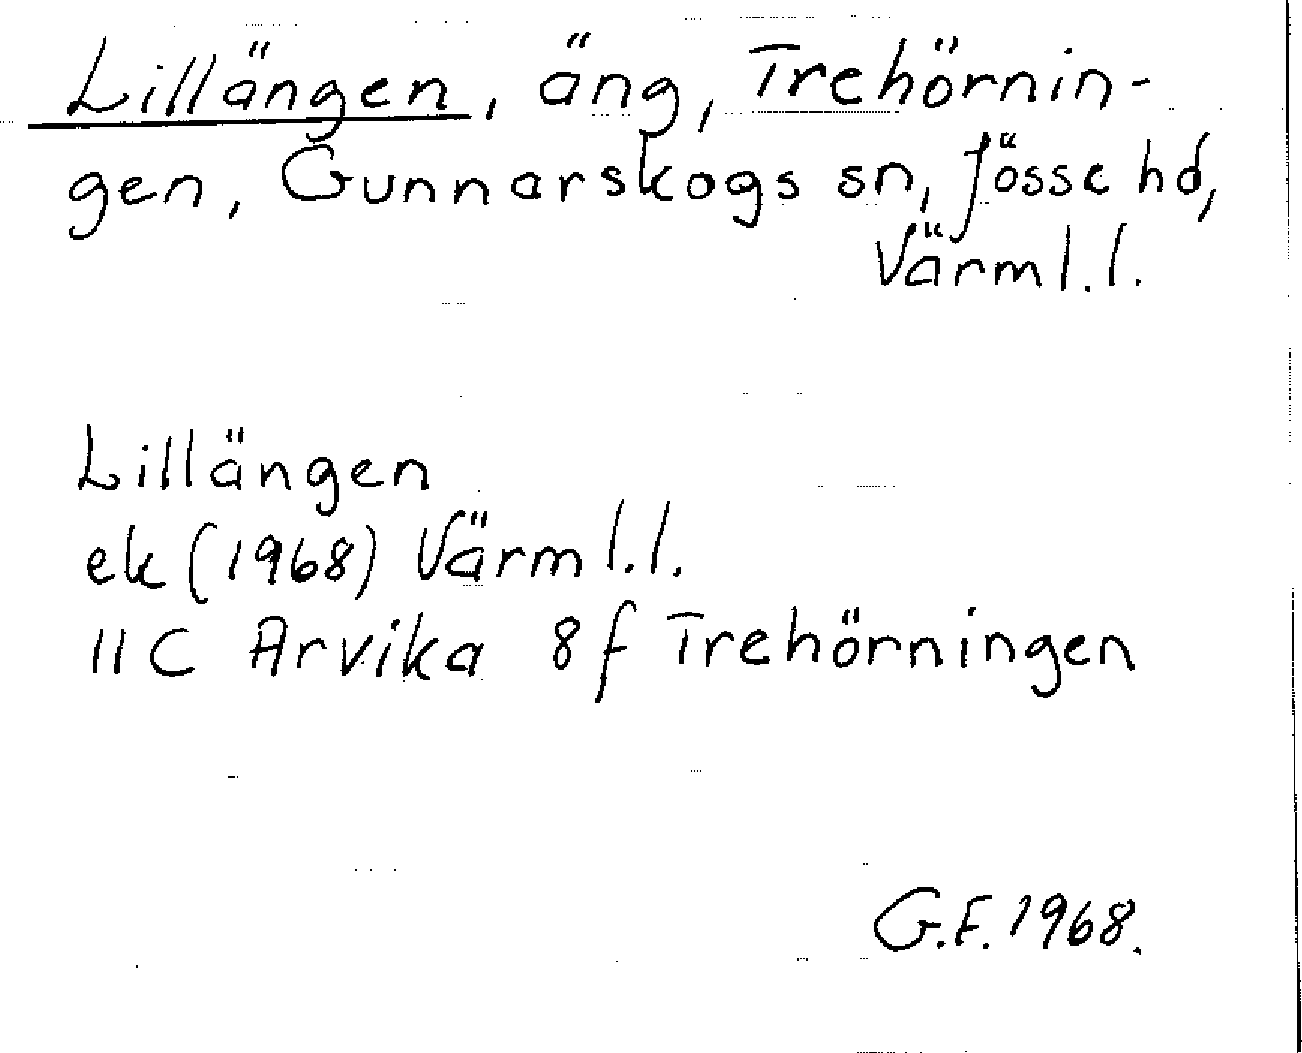 Lillängen, äng, Trehörnin-
gen, Gunnarskogs sn, Jösse hd,
Värml. l.
Lillängen
ek (1968) Värml. l.
11C Arvika 8f Trehörningen
G.F. 1968.